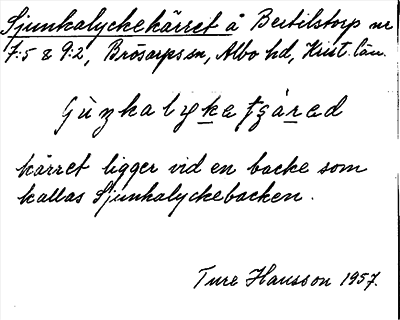 Sjunkalyckekärret å Bertilstorp nr
7:5 & 9:2, Brösarps sn, Albo hd, Krist. län.
kärret ligger vid en backe som
kallas Sjunkalyckebacken.
Ture Hansson 1957.